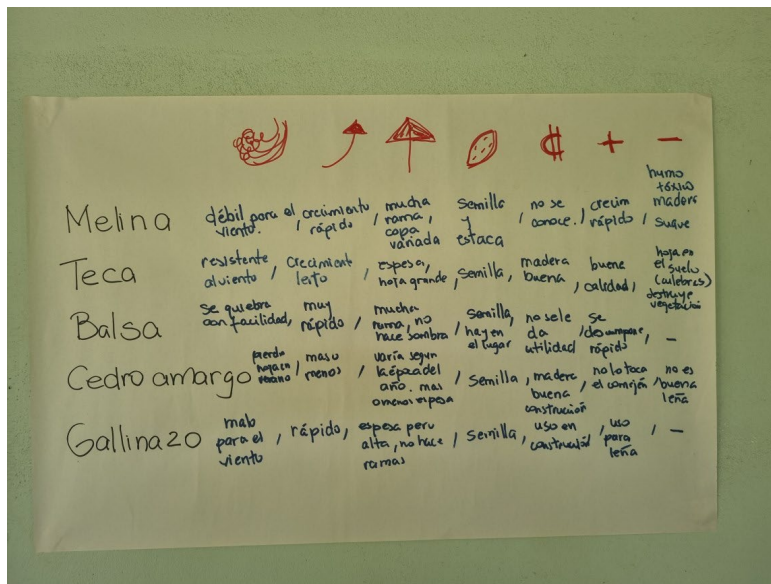 ₡ + −
Melina débil para el viento. / crecimiento rápido / mucha rama, copa variada semilla y estaca / no se conoce. / crecim rápido / humo tóxico madera suave
Teca resistente al viento / Crecimient lento / espesa, hoja grande, semilla, madera buena, buena calidad, hoja en el suelo (culebras) destruye vegetación
Balsa se quiebra con facilidad, muy rápido / mucha rama, no hace sombra / semilla, hay en el lugar / no se le da utilidad / se descompone rápido, −
Cedro amargo pierde hojas en verano / mas u menos / varía segun la época del año. mas o menos espesa / semilla, madera buena construcción / no lo toca el comején / no es buena leña
Gallinazo malo para el viento, rápido, espesa peru alta, no hace ramas / semilla, uso en construcción, uso para leña, −